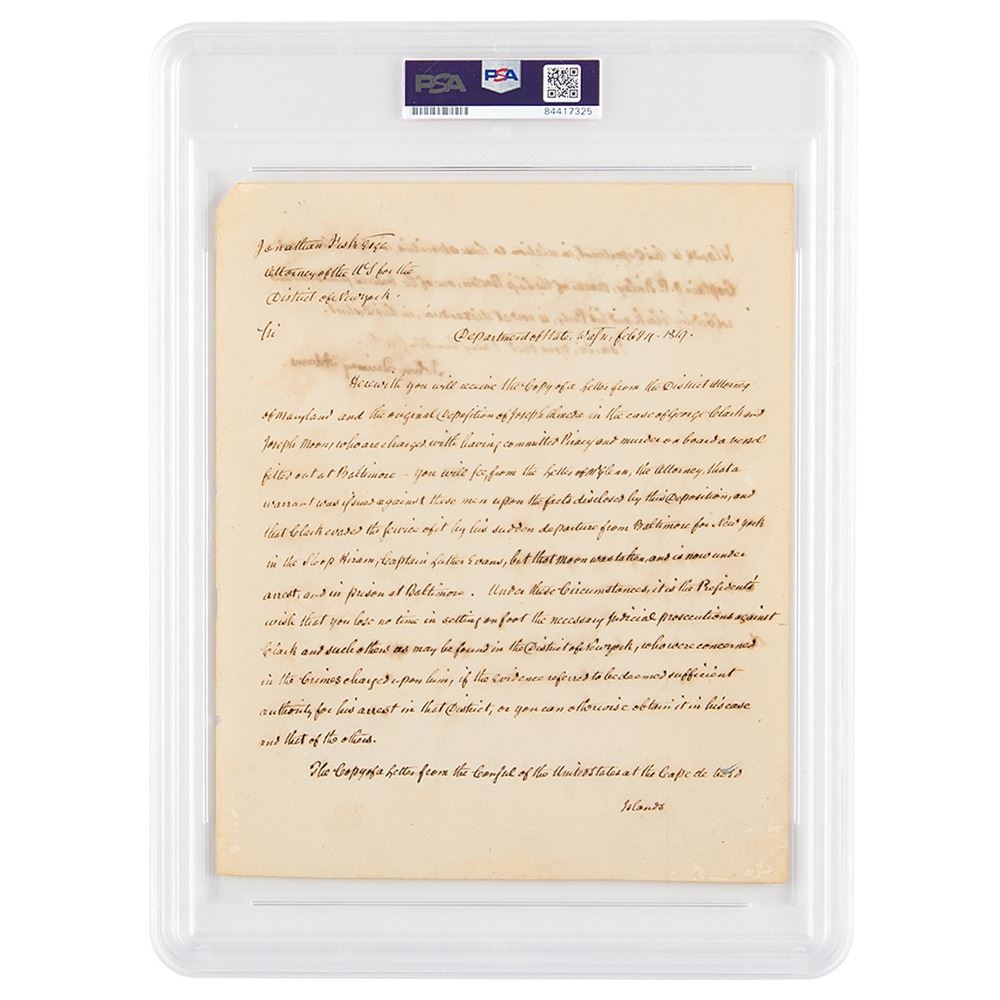 PSA
PSA
84417325
Jonathan Fisk Esqe
Attorney of the US for the
District of New York.
Sir
Department of State, Washn, feb
Herewith you will receive the Copy of a Letter from the District Attorney
of Maryland and the original Deposition of Joseph in the case of George Clark and
Joseph Moon, who are charged with having committed Piracy and murder on board a vessel
fitted out at Baltimore – you will see, from the Letter of Mr Glenn, the Attorney, that a
warrant was issued against these men upon the facts disclosed by this Deposition, and
that Clark evaded the service of it by his sudden departure from Baltimore for New york
in the Sloop Hiram, Captain Luther Evans, but that Moon was taken, and is now under
arrest, and in prison at Baltimore. Under these Circumstances, it is the President's
wish that you lose no time in setting on foot the necessary judicial prosecutions against
Clark and such others as may be found in the District of New york, who were concerned
in the Crimes charged upon him, if the evidence referred to be deemed sufficient
authority for his arrest in that District, or you can otherwise obtain it in his case
and that of the others.
The Copy of a Letter from the Consul of the United States at the Cape de Verd
Islands
John Quincy Adams